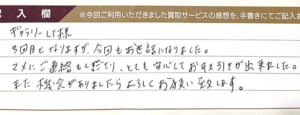 記入欄 ※今回ご利用いただきました買取サービスの感想を、手書きにてご記入
ギャラリーLT様
3回目となりますが、今回もお世話になりました。
マメにご連絡もいただけ、とても安心してお取引きが出来ました。
また機会がありましたらよろしくお願い致します。